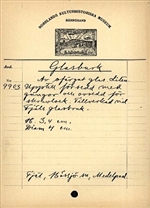 NORRLANDS KULTURHISTORISKA MUSEUM
HÄRNÖSAND
Glasburk
No
9903 Av ofärgat glas, liten.
Upptill försedd med
och avsedd för
Tillverkad vid
Fjäls glasbruk.
H. 3,4 cm.
Diam 4 cm.
Fjäl, Hässjö sn, Medelpad.